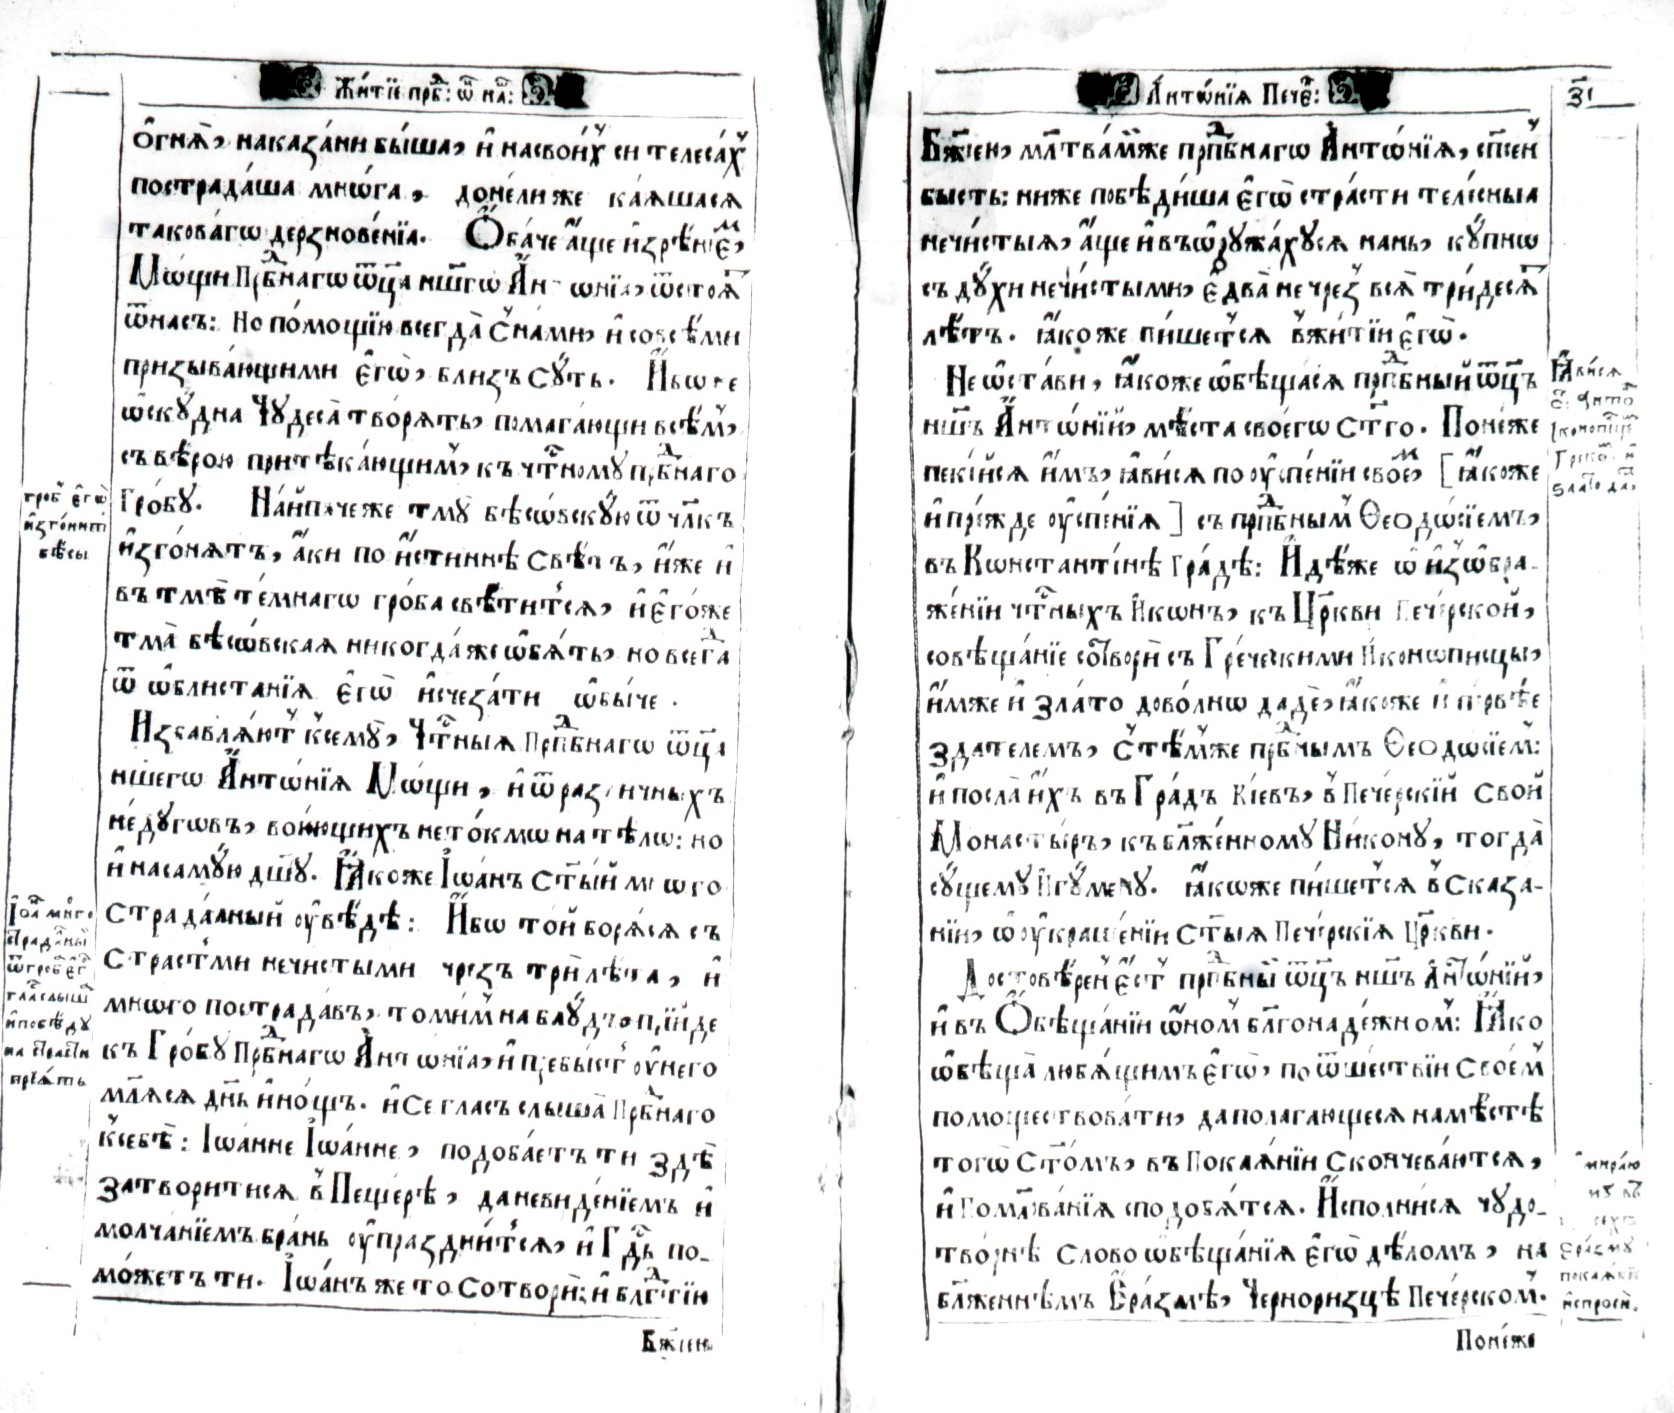 Житїе прⷣб: ѿ на҃:
огнѧ̀, наказа́ни бы́ша, и҆ насвои́хъ си телеса́хъ
пострада́ша мнѡ́га, доне́лиже ка́ѧшасѧ
такова́гѡ дерзнове́нїа. Ѻ҆ба́че а҆́ще и҆зрѣ́нїеⷨ,
Мо́щи Прⷣбнагѡ ѿц҃а нш҃гѡ А҆нтѡ́нїа, ѿстоѧⷮ
ѿнасъ: Но по́мощїю всегда̀ с̾на́ми, и҆ совсѣ́ми
призыва́ющими є҆гѡ̀, близъ сꙋ́ть. И҆́бѡ не
ѡ҆скꙋ́дна Чꙋдеса̀ творѧ́тъ, помага́ющи всѣ́м̾,
съ вѣ́рою притѣка́ющим̾, къ чтⷭ҇номꙋ прⷣбнаго
Гро́бꙋ. На́ипаче же тмꙋ̀ бѣсѡ́вскꙋю ѿ чл҃къ
и҆зго́нѧтъ, а҆́ки по и҆́стиннѣ Свѣ́тъ, и҆́же и҆
въ тмѣ̀ те́мнагѡ гро́ба свѣ́титсѧ, и҆ є҆го́же
тма̀ бѣсѡ́вская никогда́же ѡ҆бѧ́тъ, но всегⷣа
ѿ ѡ҆блистанїѧ є҆гѡ̀ и҆счеза́ти ѡ҆бы́че.
Избавлѧ́ют̾ к̾семꙋ̀, Чтⷭ҇ныѧ Прⷣпбнагѡ ѿц҃а
нш҃егѡ А҆нтѡ́нїѧ Мо́щи, и҆ ѿ разли́чныхъ
не́дꙋгѡвъ, вою́ющихъ нето́кмѡ на тѣ́лѡ: но
и҆ насамꙋ́ю дш҃ꙋ. Ꙗ҆́коже І҆ѡа́нъ Ст҃ы́й мно́гѡ
Страда́лный оу҆вѣ́дѣ: И҆́бѡ то́й борѧ́сѧ съ
Страстьми нечи́стыми чрезъ трѝ лѣ́та, и҆
мнѡ́го пострада́въ, томи́м̾ на блꙋ́дъ, прїи́де
къ Гро́бꙋ Прⷣбнагѡ А҆нтѡ́нїа, и҆ пребы́ст̾ оу҆ него
млѧ́сѧ дн҃ь и҆ но́щъ. и҆ Се гласъ слы́ша Прⷣбнаго
к̾себѣ̀: І҆ѡа́нне І҆ѡа́нне, подоба́етъ ти здѣ̀
затворитисѧ в̾ Пеще́рѣ, да неви́дѣнїемъ и҆
молча́нїемъ бра́нь оу҆праздни́тсѧ, и҆ Гдⷭ҇ь по-
мо́жетъ ти. І҆ѡа́нъ же то Сотвори̑: и҆ блгⷣтїю
Бж҃їею
гроб̾ є҆гѡ̀
и҆зго́нитъ
бѣсы
І҆оа҃ мно́го
страда́лны
ѿ гроба є҆гѡ
гла́с слыша
и҆ побѣ́дꙋ
на стра́сти
прїѧ́тъ
А҆нтѡ́нїѧ Печеⷬ:
з҃і
Бж҃їею, мл҃тва́миже прⷣпбнагѡ А҆нтѡ́нїѧ, сп҃сен̾
бы́сть: ниже побѣди́ша є҆гѡ̀ стра́сти теле́сныа
нечи́стыѧ, а҆́ще и҆ въѡ҆рꙋжа́хꙋсѧ нань, кꙋ́пнѡ
съ дꙋ́хи нечи́стыми, є҆два̀ не чрез̾ всѧ̀ три́десѧⷮ
лѣ́тъ. ꙗ҆́коже пи́шетсѧ в̾жи́тїи є҆гѡ̀.
Не ѡ҆ста́ви, ꙗ҆́коже ѡ҆бѣща́сѧ прⷣпбный ѿц҃ъ
нш҃ъ А҆нтѡ́нїй, мѣ́ста своегѡ Ст҃го. Поне́же
пекі́йсѧ и҆́мъ, ꙗ҆ви́сѧ по оу҆спе́нїи своеⷨ, [ ꙗ҆́коже
и҆ пре́жде оу҆спе́нїѧ ] съ прⷣпбным̾ Ѳеодѡ́сїемъ,
въ Кѡнстанті́нѣ гра́дѣ: И҆дѣ́же ѡ҆ и҆з̾ѡ҆бра-
же́нїи чтⷭ҇ныхъ И҆кѡнъ, къ Цр҃кви Пече́рской,
совѣща́нїе сотвори̑ съ Гре́ческими И҆конѡписцы,
и҆́мже и҆ зла́то дово́лнѡ даде̑, ꙗ҆́коже и҆ пе́рвѣе
здателемъ, с̾тѣ́м̾же прⷣбнымъ Ѳеодѡ́сїем̾:
и҆ посла̀ и҆́хъ въ Гра́дъ Кі́евъ, в̾ Пече́рскїй Свой
Монасты́рь, къ бл҃же́нномꙋ Ни́конꙋ, тогда̀
сꙋ́щемꙋ И҆гꙋ́менꙋ. ꙗ҆́кѡже пи́шетсѧ в̾ Сказа́-
нїи, ѡ҆ оу҆краше́нїи Ст҃ыѧ Пече́рскїѧ Цр҃кви.
Достовѣ́рен̾ є҆́ст̾ прⷣпбный ѿц҃ъ нш҃ъ А҆нтѡ́нїй,
и҆ въ Ѻ҆бѣща́нїи ѡ҆ном̾ бл҃гонаде́жном̾: Ꙗ҆́ко
ѡ҆бѣща̀ любѧ́щимъ є҆гѡ̀, по ѿше́ствїи Свое́м̾
помоществова́ти, да полага́ющесѧ на мѣ́стѣ
тогѡ̀ Ст҃о́мъ, въ Покаѧ́нїи Скончева́ютсѧ,
и҆ Помл҃ованїѧ сподобѧ́тсѧ. И҆спо́лнисѧ чꙋдо-
тво́рнѣ слово ѡ҆бѣща́нїѧ є҆гѡ̀ дѣ́ломъ, на
бл҃же́ннѣмъ Е҆ра́змѣ, Черноризцѣ Пече́рском̾.
Поне́же
Ꙗ҆ви́сѧ
злато да,
покаѧ́нїе
и҆спроси̑.